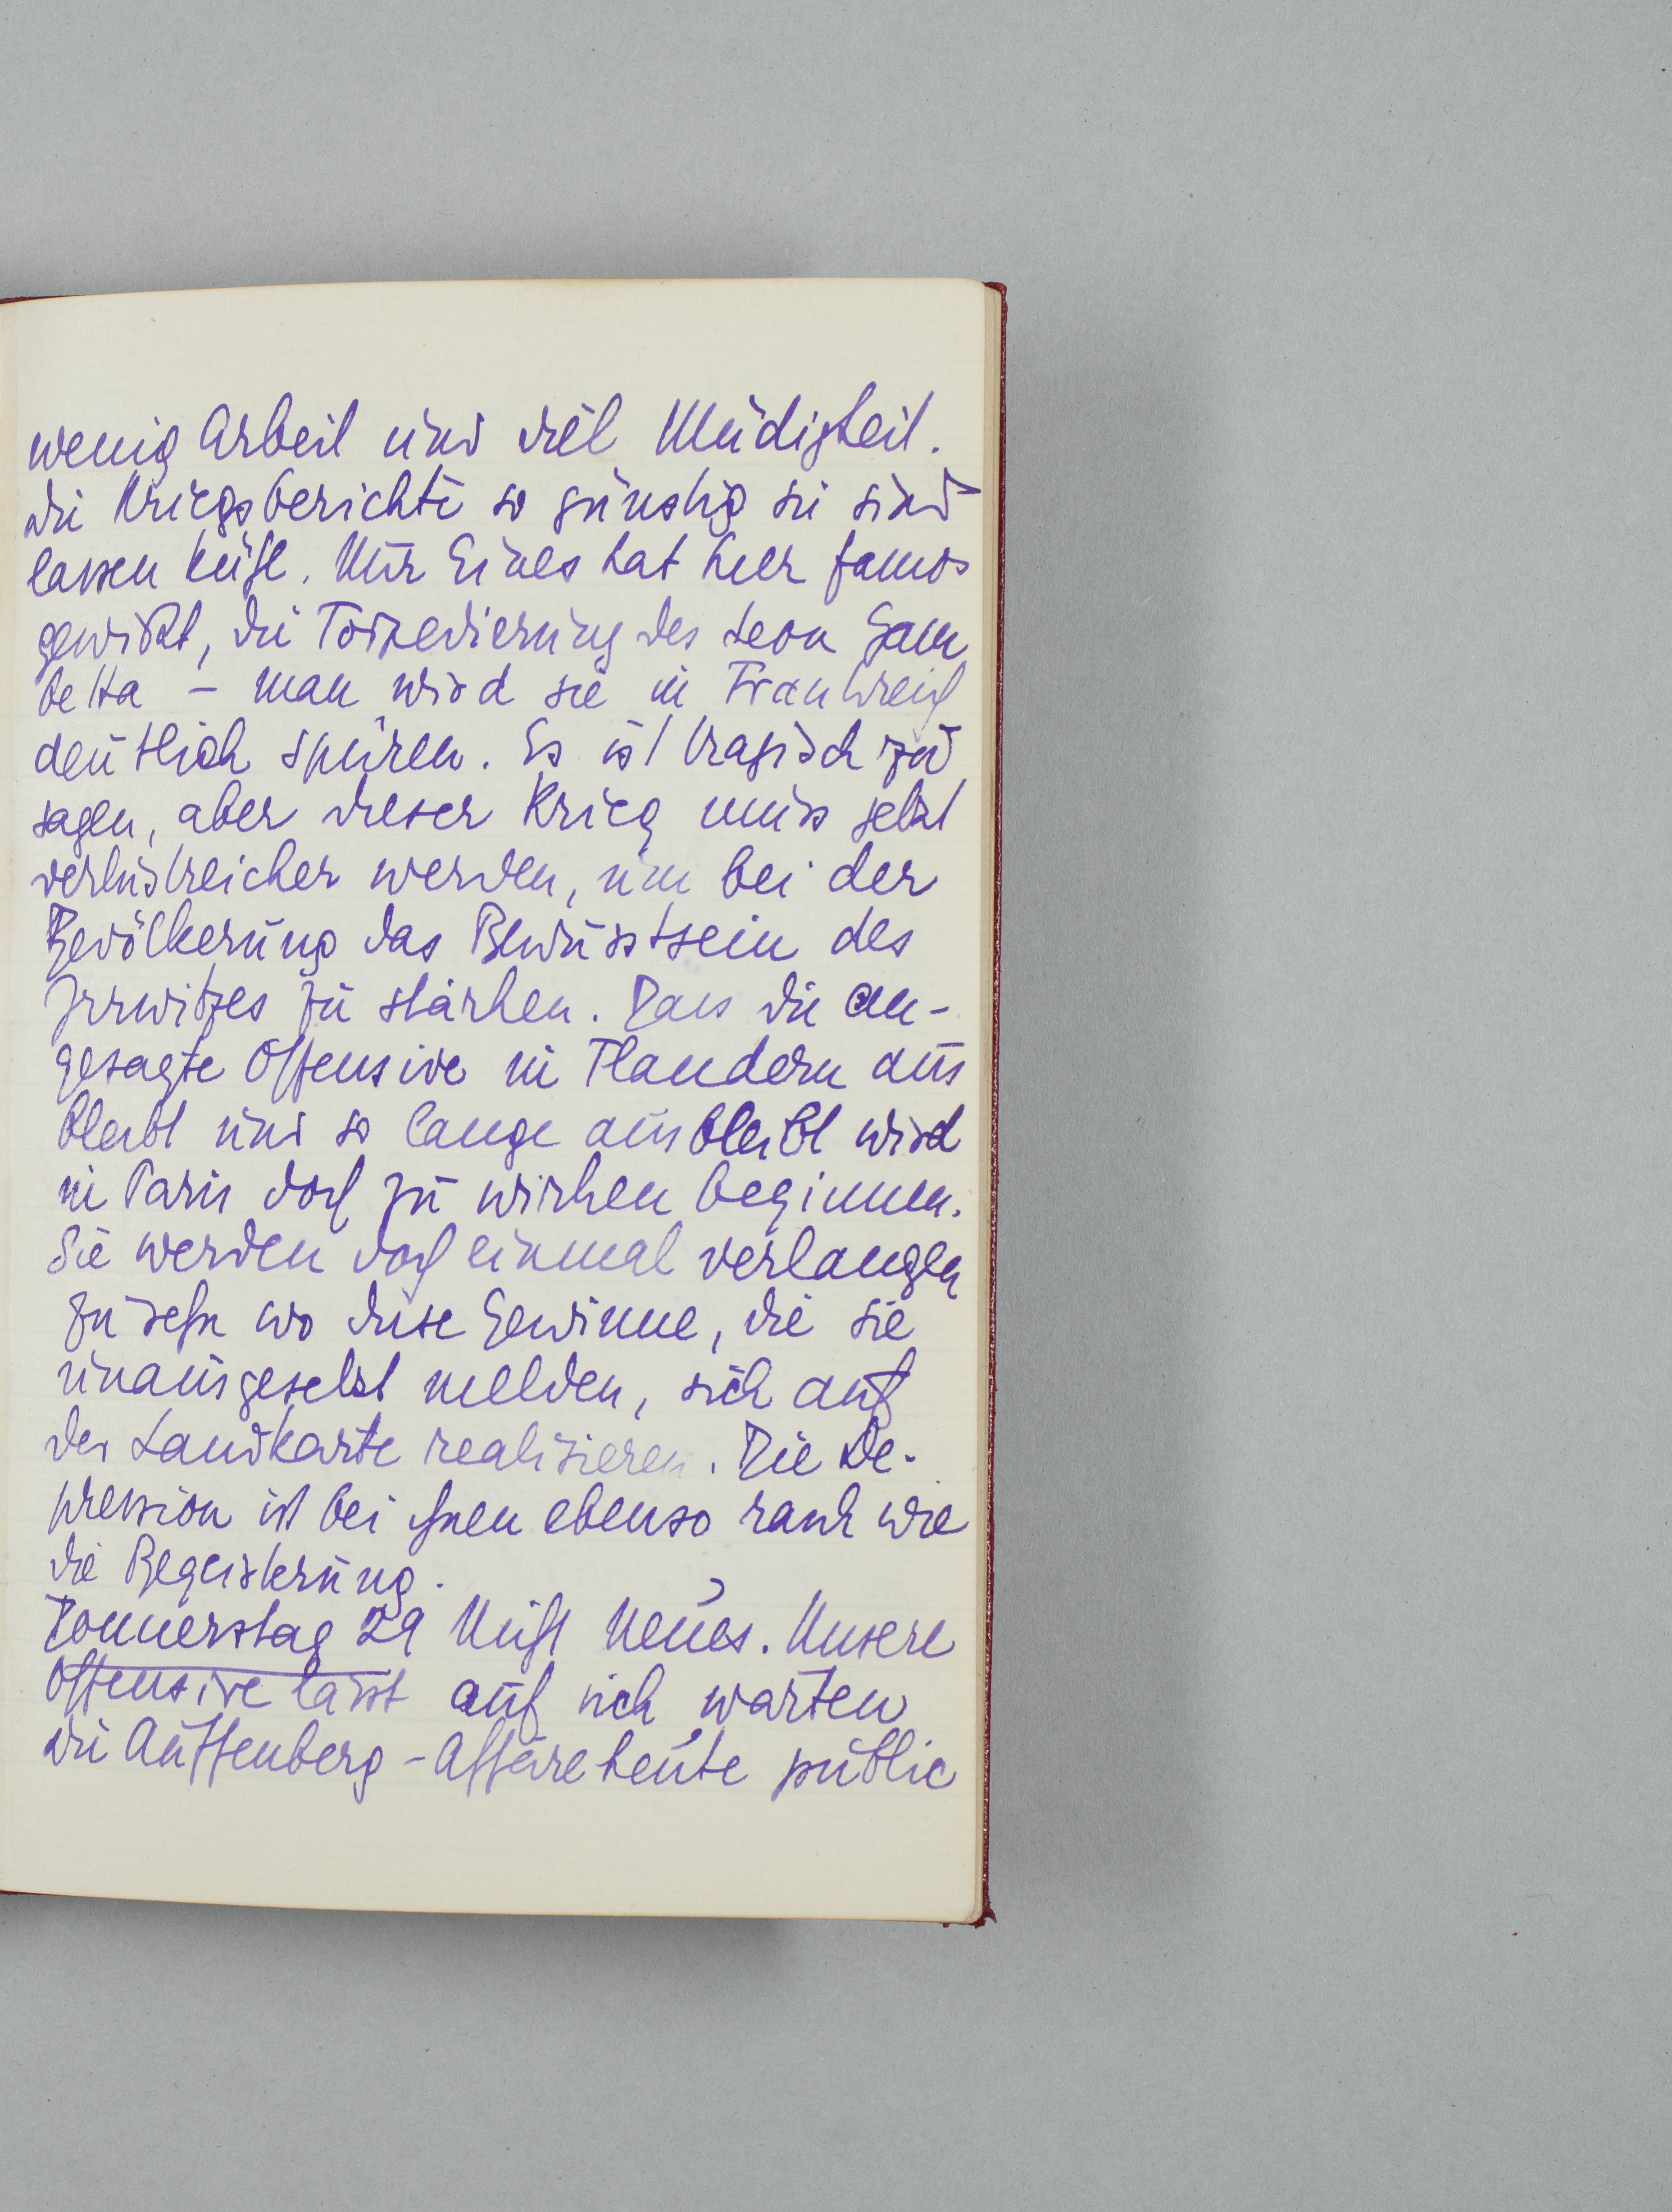 wenig Arbeit und viel Müdigkeit.
Die Kriegsberichte so günstig sie sind
lassen kühl. Nur Eines hat hier famos
gewirkt, die Torpedierung des Leon Gam
betta – man wird sie in Frankreich
deutlich spüren. Es ist tragisch zu
sagen, aber dieser Krieg muss jetzt
verlustreicher werden, um bei der
Bevölkerung das Bewusstsein des
Irrwitzes zu stärken. Dass die an-
gesagte Offensive in Flandern aus
bleibt und so lange ausbleibt wird
in Paris doch zu wirken beginnen.
Sie werden doch einmal verlangen
zu sehn wo diese Gewinne, die sie
unausgesetzt melden, sich auf
der Landkarte realisieren. Die De-
pression ist bei ihnen ebenso rasch wie
die Begeisterung.
Donnerstag 29 Nichts Neues. Unsere
Offensive lässt auf sich warten
die Auffenberg-Affaire heute public